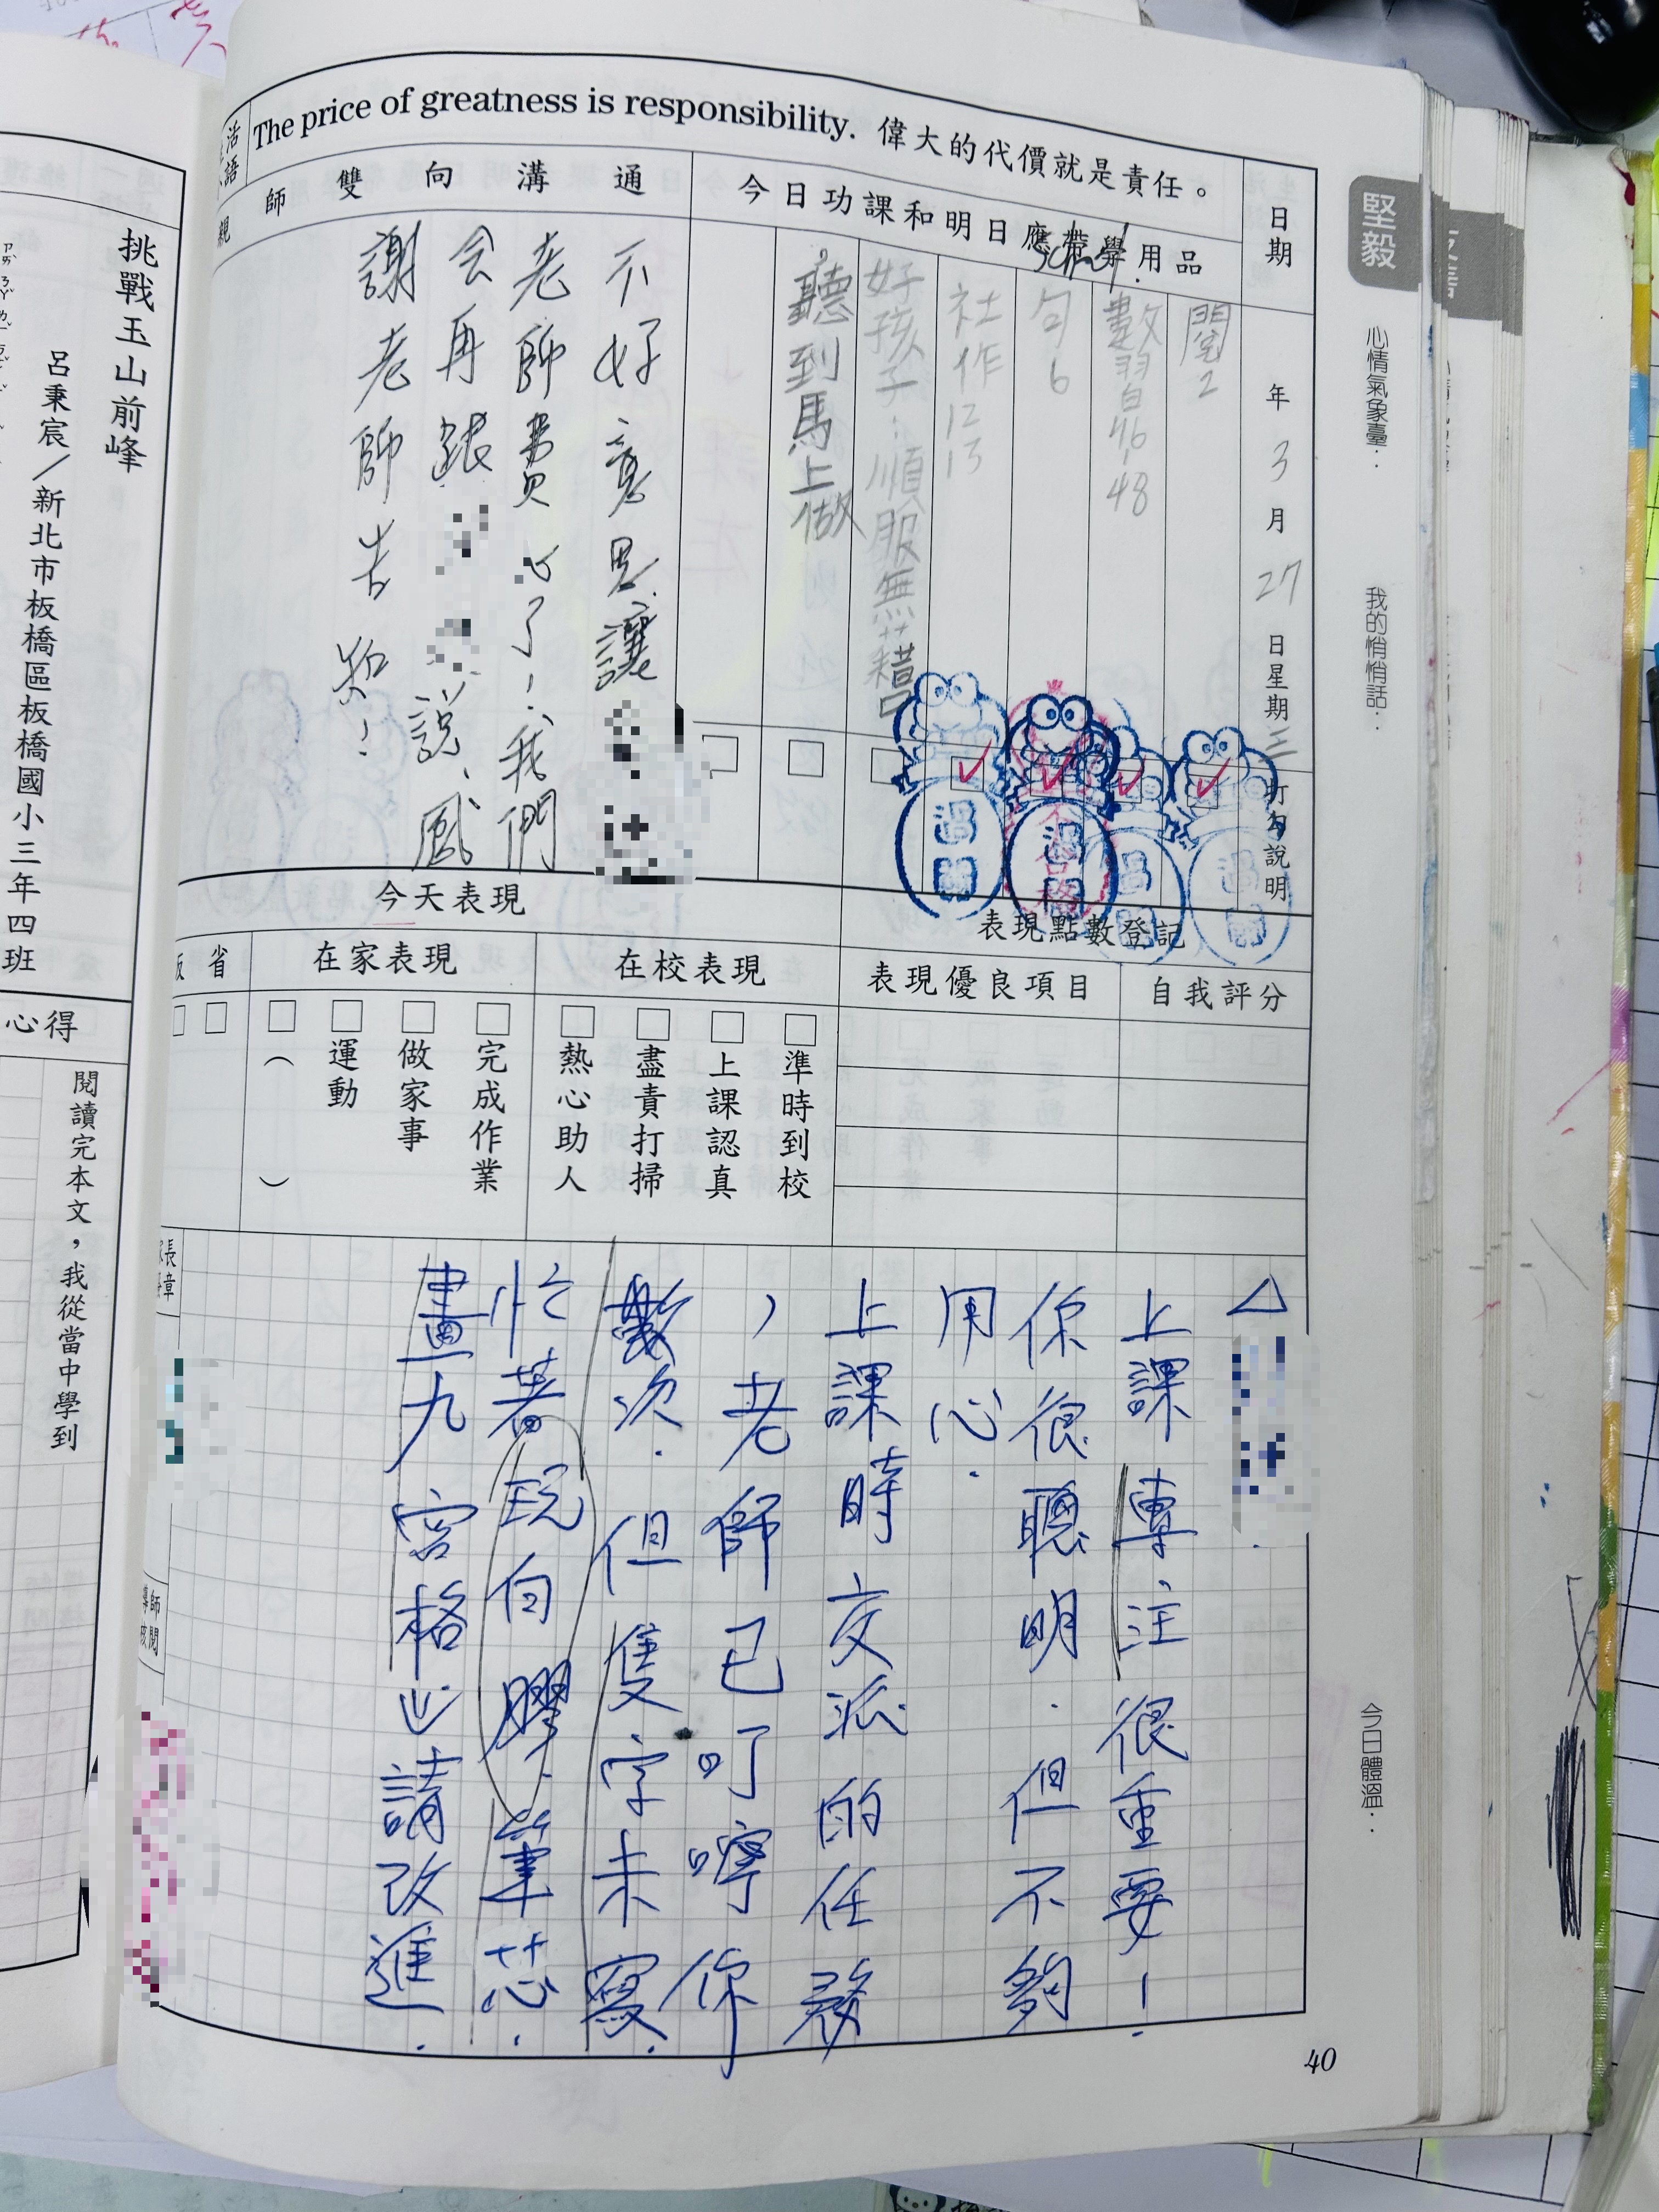 The price of greatness is responsibility. 偉大的代價就是責任。
堅毅
心情氣象臺：
我的悄悄話：
今日體溫：
日期
年3月27日星期三
打勾說明
今日功課和明日應帶學用品
閱2
數習自46、48
句6
社作12、13
好孩子：順服無藉口
，聽到馬上做
親師雙向溝通
不好意思讓
老師費心了！我們
会再跟
說、感
謝老師告知！
表現點數登記
自我評分
表現優良項目
今天表現
在校表現
準時到校
上課認真
盡責打掃
熱心助人
在家表現
完成作業
做家事
運動
（ ）
省
△
上課專注很重要！
你很聰明．但不夠
用心．
上課時交派的任務
，老師已叮嚀你
數次．但隻字未寫．
忙著玩白膠、筆芯．
畫九宮格⋯請改進．
長章
師閱
40
挑戰玉山前峰
呂秉宸／新北市板橋區板橋國小三年四班
心得
閱讀完本文，我從當中學到